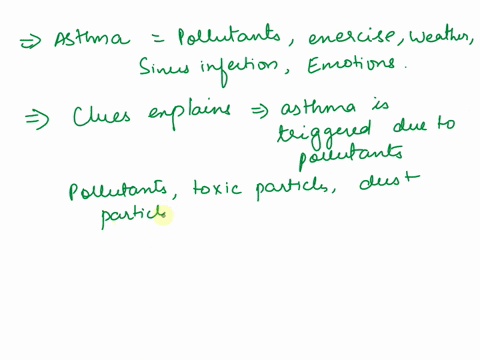 ⇒ Asthma = Pollutants, enercise, Weather,
Sinus infection, Emotions.
⇒ Clues explains ⇒ asthma is
triggered due to
pollutants
Pollutants, toxic particles, dust
particl